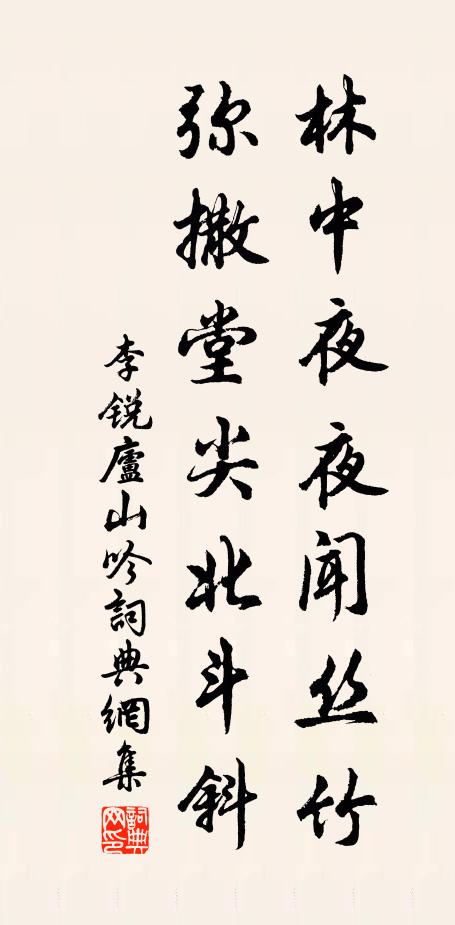 林中夜夜闻丝竹
弥撒堂尖北斗斜
李锐廬山吟詞典網集
詞典网印